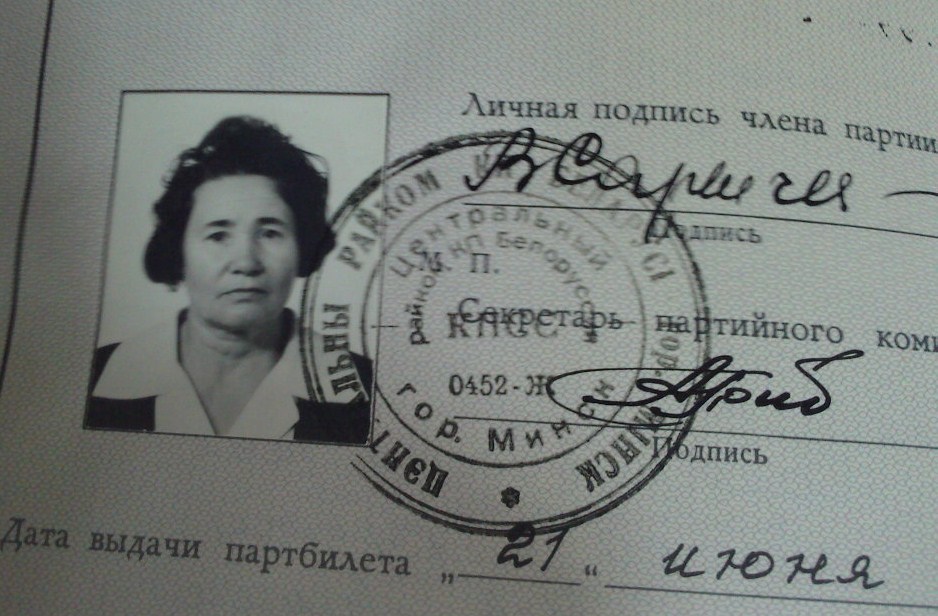 Личная подпись члена партии
Подпись
М. П.
Секретарь партийного
Подпись
ЦЭНТ ЛЬНЫ РАЙКОМ
гор. МИНСК
Центральный
райком КП Белоруссии
КПСС
0452-Ж
гор. Минск
Дата выдачи партбилета „ 21 “ июня